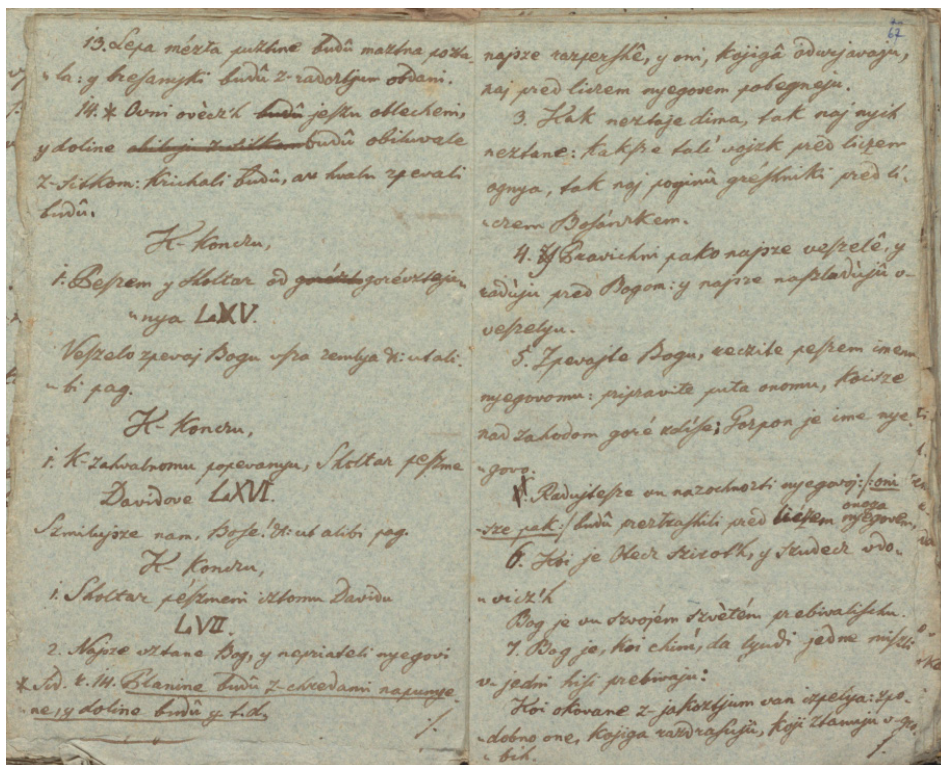 13. Lepa mézta pusztine budû masztna pozta-
"la: y bresanyki budû z-radosztjum obdani.
14. * Ovni ovècz'h budû jeszu oblecheni,
y doline budû obiluvale
z-sitkom: krichali budû, ar hvalu zpevali
budû.
K-Konczu,
1. Peszem y Sholtar od gorévztaja-
"nya LXV.
Veszelo zpevaj Bogu vsza zemlya &: ut ali-
"bi pag.
K-Konczu,
1. K-zahvalnomu popevanyu, Sholtar peszme
Davidove LXVI.
Szmilujsze nam, Bose! &: ut alibi pag.
K-Konczu,
1. Sholtar pészmeni isztomu Davidu
LVII.
2. Najsze vztane Bog, y nepriateli njegovi
* Sid. v. 14. Planine budû z-chredami napunje-
"ne, y doline budû y t.d.
67
najsze razperskê, y oni, kojigâ odurjavaju,
naj pred liczem nyegovem pobegneju.
3. Kak nesztaje dima, tak naj nyih
nesztane: kaksze tali vojzk pred liczem
ognya, tak naj poginû gréshniki pred li-
"czem Bosánzkem.
4. Pravichni pako najsze veszelê, y
radùju pred Bogom: y najsze naszladùjû v-
veszelyu.
5. Zpevajte Bogu, reczite peszem imenu
nyegovomu: pripravite puta onomu, koisze
nad zahodom goré zdíse; Goszpon je ime nye-
"govo.
Radujtesze vu nazochnosti nyegovoj: /: oni
"sze pak :/ budû preztrashili pred liczem onoga nyegovem,
6. Koi je Otecz szirotîh, y szudecz vdo-
"vicz'h
Bog je vu szvojém szvètém prebivalischu.
7. Bog je, koi chini, da lyudi jedne miszli
v-jedni hisi prebivaju:
Koi okovane z-jakosztjum van zpelya: zpo-
"dobno one, kojiga razdrasuju, koji ztanuju v-gro-
"bih.